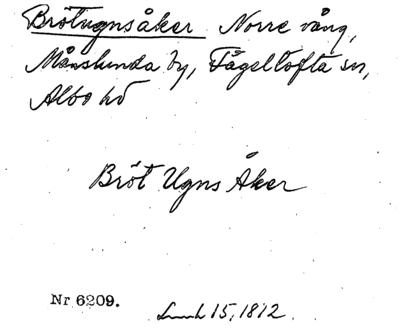 Brötugnsåker Norre vång,
Månslunda by, Fågeltofta sn,
Albo hd
Bröt Ugns Åker
Nr 6209.
15, 1812.